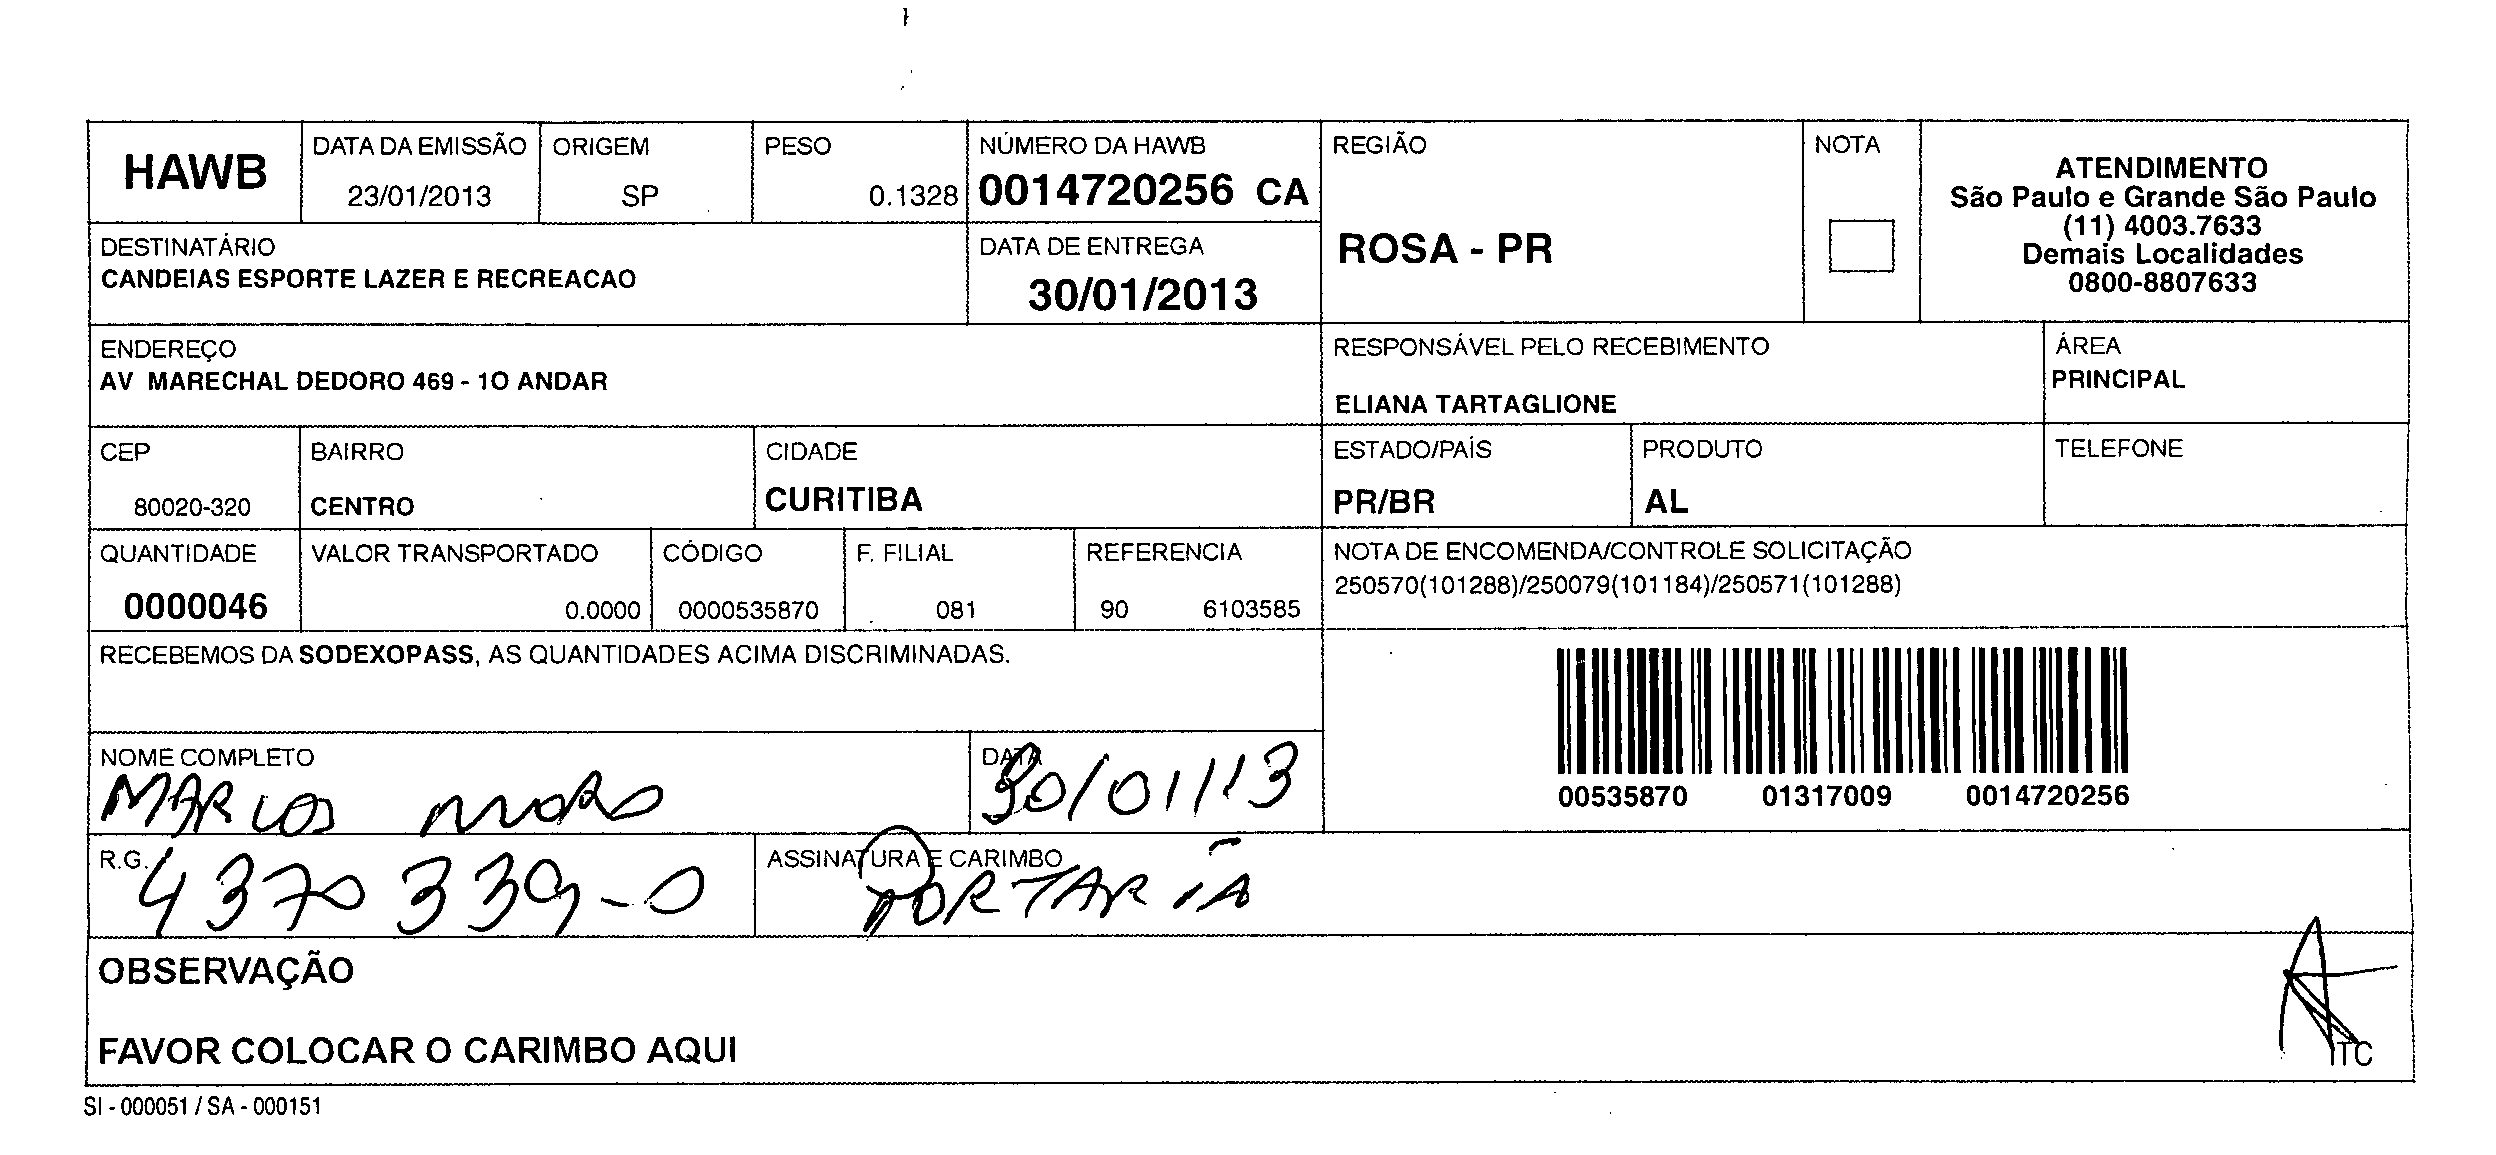 HAWB
DATA DA EMISSÃO
23/01/2013
ORIGEM
SP
PESO
0.1328
NÚMERO DA HAWB
0014720256 CA
REGIÃO
ROSA - PR
NOTA
ATENDIMENTO
São Paulo e Grande São Paulo
(11) 4003.7633
Demais Localidades
0800-8807633
DESTINATÁRIO
CANDEIAS ESPORTE LAZER E RECREACAO
DATA DE ENTREGA
30/01/2013
ENDEREÇO
AV MARECHAL DEDORO 469 - 1O ANDAR
RESPONSÁVEL PELO RECEBIMENTO
ELIANA TARTAGLIONE
ÁREA
PRINCIPAL
CEP
80020-320
BAIRRO
CENTRO
CIDADE
CURITIBA
ESTADO/PAÍS
PR/BR
PRODUTO
AL
TELEFONE
QUANTIDADE
0000046
VALOR TRANSPORTADO
0.0000
CÓDIGO
0000535870
F. FILIAL
081
REFERENCIA
90 6103585
NOTA DE ENCOMENDA/CONTROLE SOLICITAÇÃO
250570(101288)/250079(101184)/250571(101288)
RECEBEMOS DA SODEXOPASS, AS QUANTIDADES ACIMA DISCRIMINADAS.
00535870 01317009 0014720256
NOME COMPLETO
MARCOS
DATA
30/01/13
R.G.
4370339-0
ASSINATURA E CARIMBO
PORTARIA
OBSERVAÇÃO
FAVOR COLOCAR O CARIMBO AQUI
ITC
SI - 000051 / SA - 000151